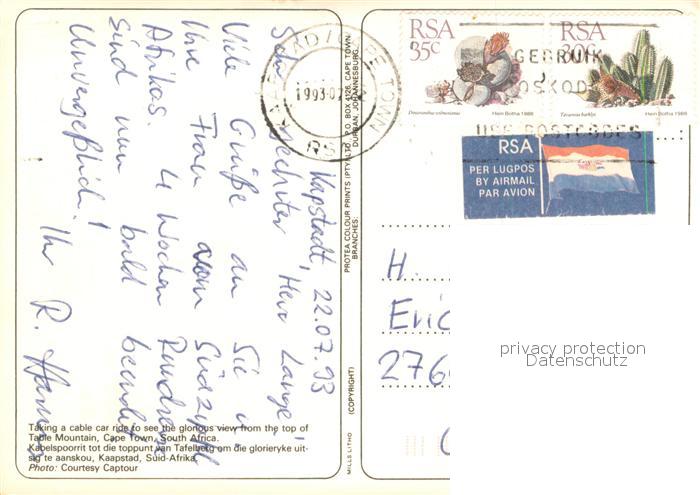 Kapstadt, 22.07.93
Sehr Herr Lange!
Viele Grüße an Sie u.
Ihre Frau vom Südzipfel
Afrikas. 4 Wochen Rundreise
sind nun bald beendet.
Unvergeßlich! Ihr R.
Taking a cable car ride to see the glorious view from the top of
Table Mountain, Cape Town, South Africa.
Kabelspoorrit tot die toppunt van Tafelberg om die glorieryke uit-
sig te aanskou, Kaapstad, Suid-Afrika.
Photo: Courtesy Captour
MILLS LITHO (COPYRIGHT)
PROTEA COLOUR PRINTS (PTY) LTD., P.O. BOX 4126, CAPE TOWN.
BRANCHES: DURBAN, JOHANNESBURG.
KAAPSTAD/CAPE TOWN
1993-07
RSA
RSA
35c
Hein Botha 1988
RSA
30c
Hein Botha 1988
GEBRUIK
POSKODES
USE POSTCODES
RSA
PER LUGPOS
BY AIRMAIL
PAR AVION
H.
Eric
276
privacy protection
Datenschutz